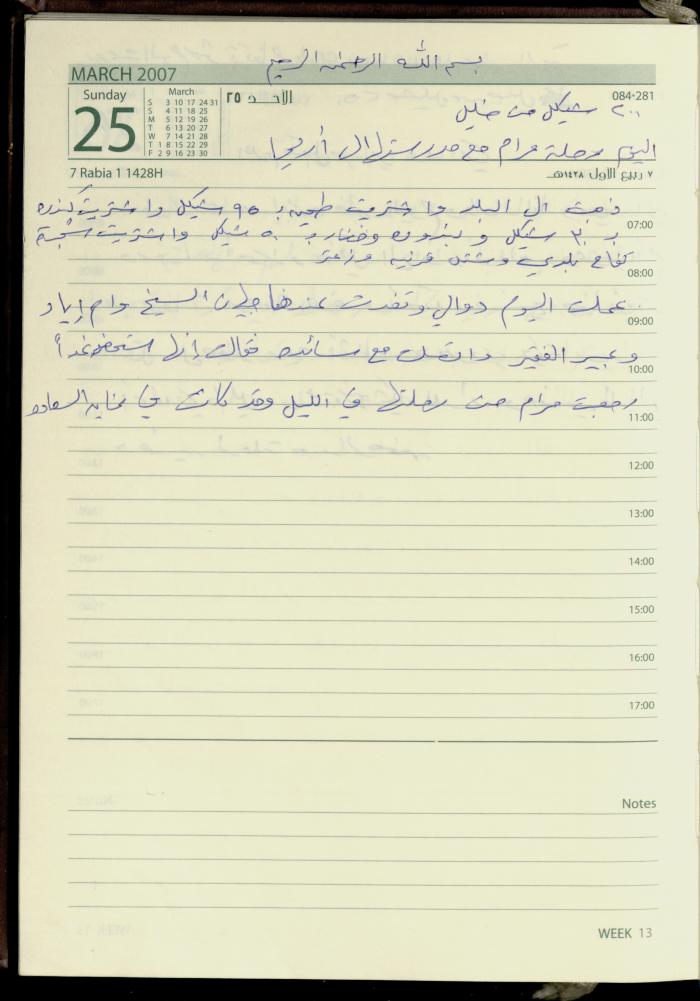 بسم الله الرحمن الرحيم
MARCH 2007
Sunday
25
March
S 3 10 17 24 31
S 4 11 18 25
M 5 12 19 26
T 6 13 20 27
W 7 14 21 28
T 1 8 15 22 29
F 2 9 16 23 30
الأحد ٢٥
084-281
٢٠٠ شيكل من خليل
اليوم رحلة مرام مع مدرستها الى أريحا
7 Rabia 1 1428H
٧ ربيع الأول ١٤٢٨هـ
ذهبت الى البلد واشتريت ب ٩٥ شيكل واشتريت كندره
07:00
ب ٣٠ شيكل و وخضار ب ٥٠ شيكل واشتريت
تفاح بلدي وشتل
08:00
عملت اليوم دوالي وتغدت عندها الشيخ وام إياد
09:00
وعبير الفقير واتصلت مع سائده فقالت إنها غداً
10:00
رجعت مرام من رحلتها في الليل وقد كانت في غايه السعاده
11:00
12:00
13:00
14:00
15:00
16:00
17:00
Notes
WEEK 13